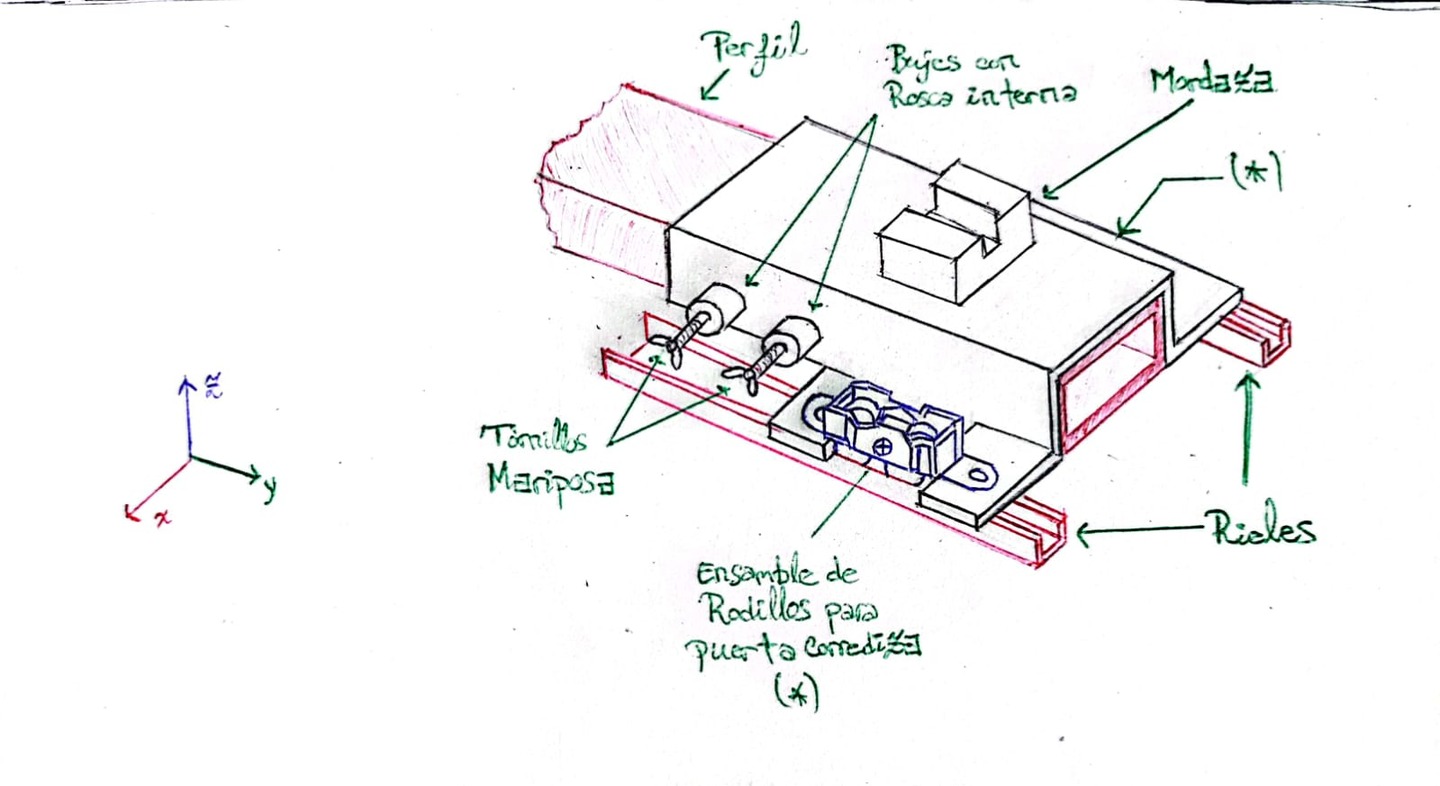 Perfil
Bujes con
Rosca interna
Mordaza
(*)
z
y
x
Tornillos
Mariposa
Rieles
Ensamble de
Rodillos para
puerta corrediza
(*)